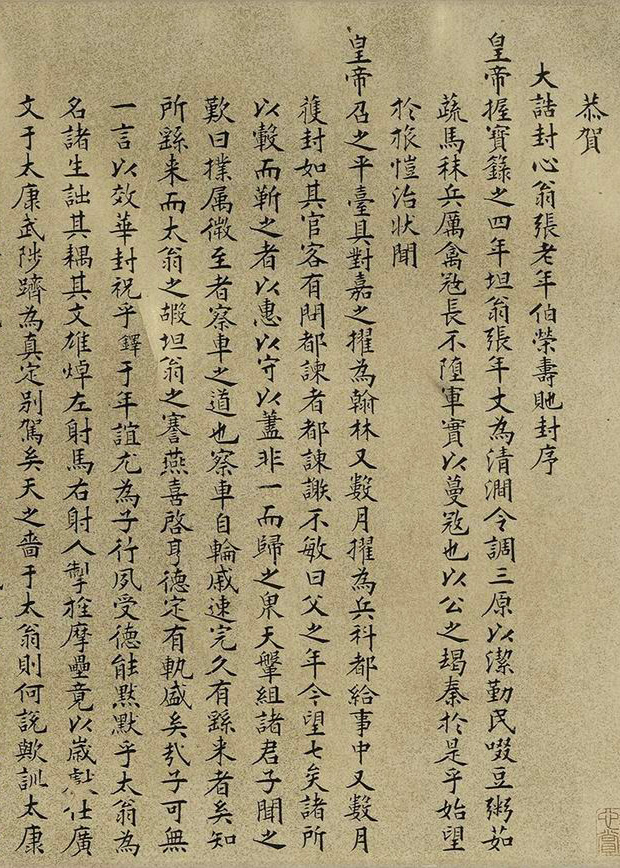 恭賀
大誥封心翁張老年伯榮壽貤封序
皇帝握寶籙之四年坦翁張年丈為清澗令調三原以潔勤民啜豆粥茹
蔬馬秣兵厲禽寇長不墮軍實以蔓寇也以公之竭秦於是乎始望
於旅愷治狀聞
皇帝召之平臺具對嘉之擢為翰林又數月擢為兵科都給事中又數月
獲封如其官客有問都諫者都諫謝不敏曰父之年今望七矣諸所
以轂而靳之者以惠以守以藎非一而歸之果天鞶組諸君子聞之
歎曰樸属微至者察車之道也察車自輪戚速完久有繇来者矣知
所繇来而太翁之嘏坦翁之謇燕喜啓亨德定有軌盛矣㢤子可無
一言以效華封祝乎鐸于年誼尤為子行夙受德能黙默乎太翁為
名諸生詘其耦其文雄焯左射馬右射人掣拴摩壘竟以歲獻仕廣
文于太康武陟躋為真定别駕矣天之嗇于太翁則何說歟訓太康